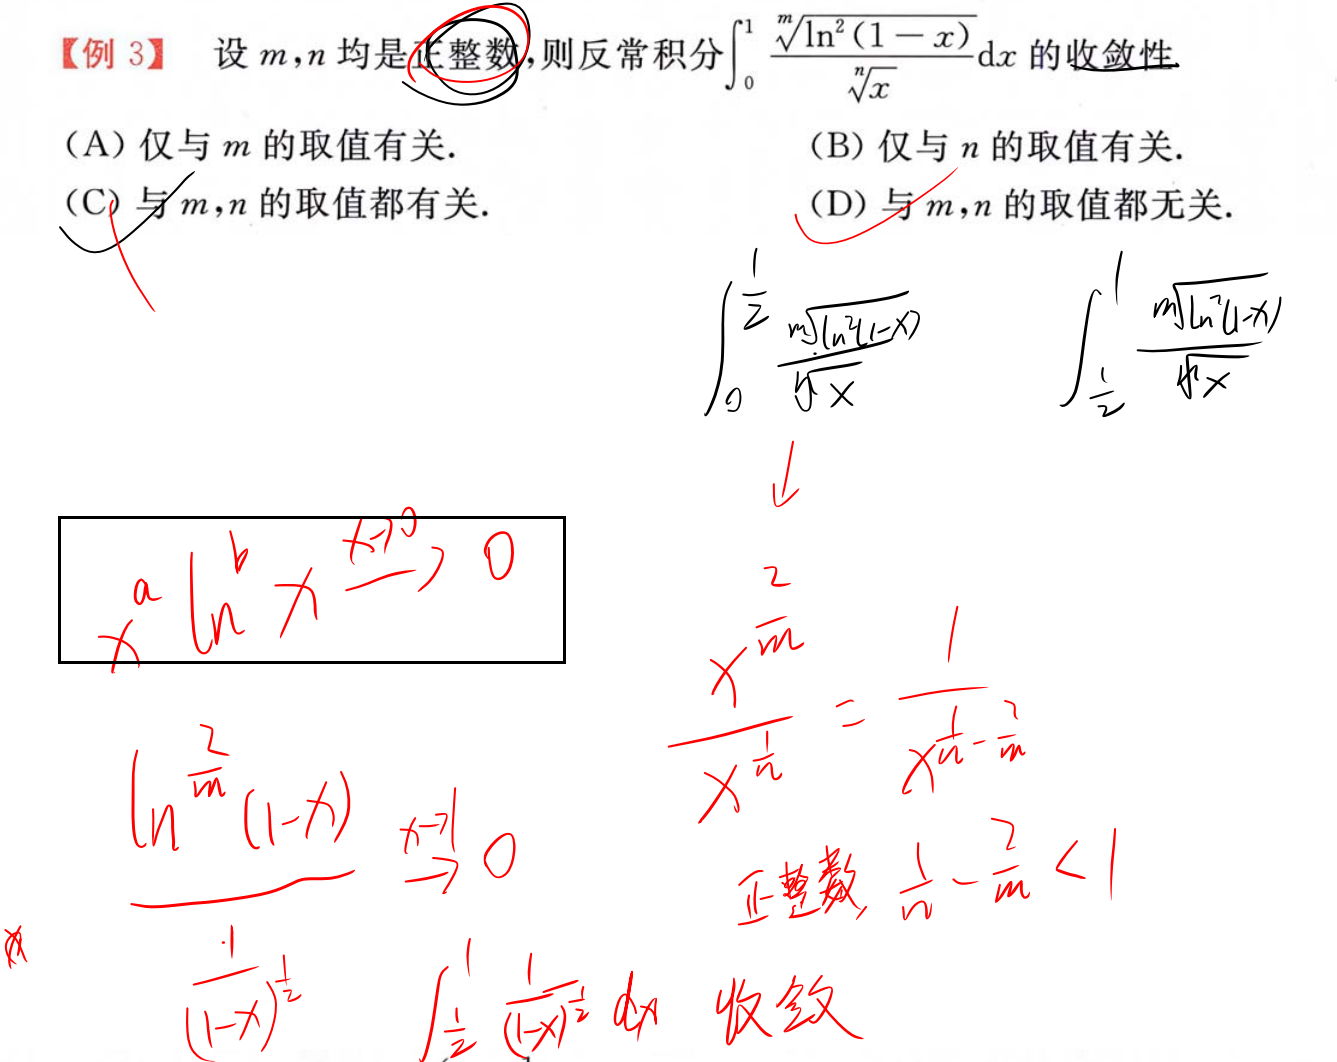 【例 3】 设 m,n 均是正整数,则反常积分∫₀¹ ᵐ√(ln²(1-x)) / ⁿ√x dx 的收敛性
(A) 仅与 m 的取值有关.
(B) 仅与 n 的取值有关.
(C) 与 m,n 的取值都有关.
(D) 与 m,n 的取值都无关.
∫₀^(1/2) ᵐ√(ln²(1-x)) / ⁿ√x
∫_(1/2)^1 ᵐ√(ln²(1-x)) / ⁿ√x
xᵃ lnᵇ x →(x→0) 0
x^(2/m) / x^(1/n) = 1 / x^(1/n - 2/m)
ln^(2/m)(1-x) / (1/(1-x)^(1/2)) →(x→1) 0
正整数, 1/n - 2/m < 1
∫_(1/2)^1 1/(1-x)^(1/2) dx 收敛